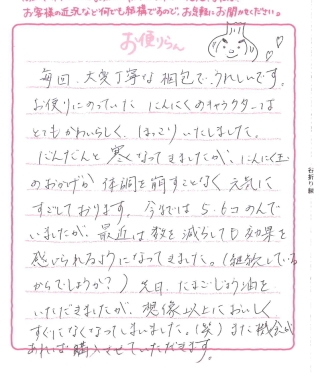 お客様の近況など何でも結構でので、お気軽にお聞かせください。
お便りらん
毎回、大変丁寧な梱包で、うれしいです。
お便りにのっていた にんにくのキャラクターは
とてもかわいらしく、ほっこりいたしました。
だんだんと寒くなってきましたが、にんにく玉
のおかげか 体調を崩すことなく元気に
すごしております。今までは 5、6コのんで
いましたが、最近は数を減らしても効果を
感じられるようになってきました。(継続している
からでしょうか?) 先日、たまごしょう油を
いただきましたが、想像以上においしく
すぐになくなってしまいました。(笑) また機会が
あれば購入させていただきます。